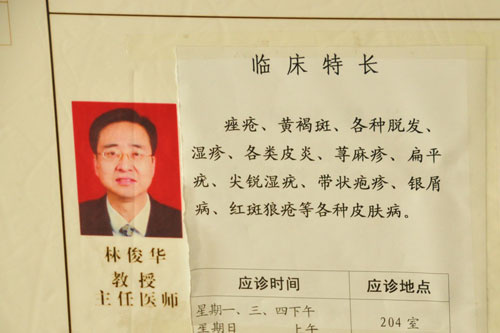 临床特长
痤疮、黄褐斑、各种脱发、
湿疹、各类皮炎、荨麻疹、扁平
疣、尖锐湿疣、带状疱疹、银屑
病、红斑狼疮等各种皮肤病。
林俊华
教授
主任医师
应诊时间 应诊地点
星期一、三、四下午 204室
星期日 上午